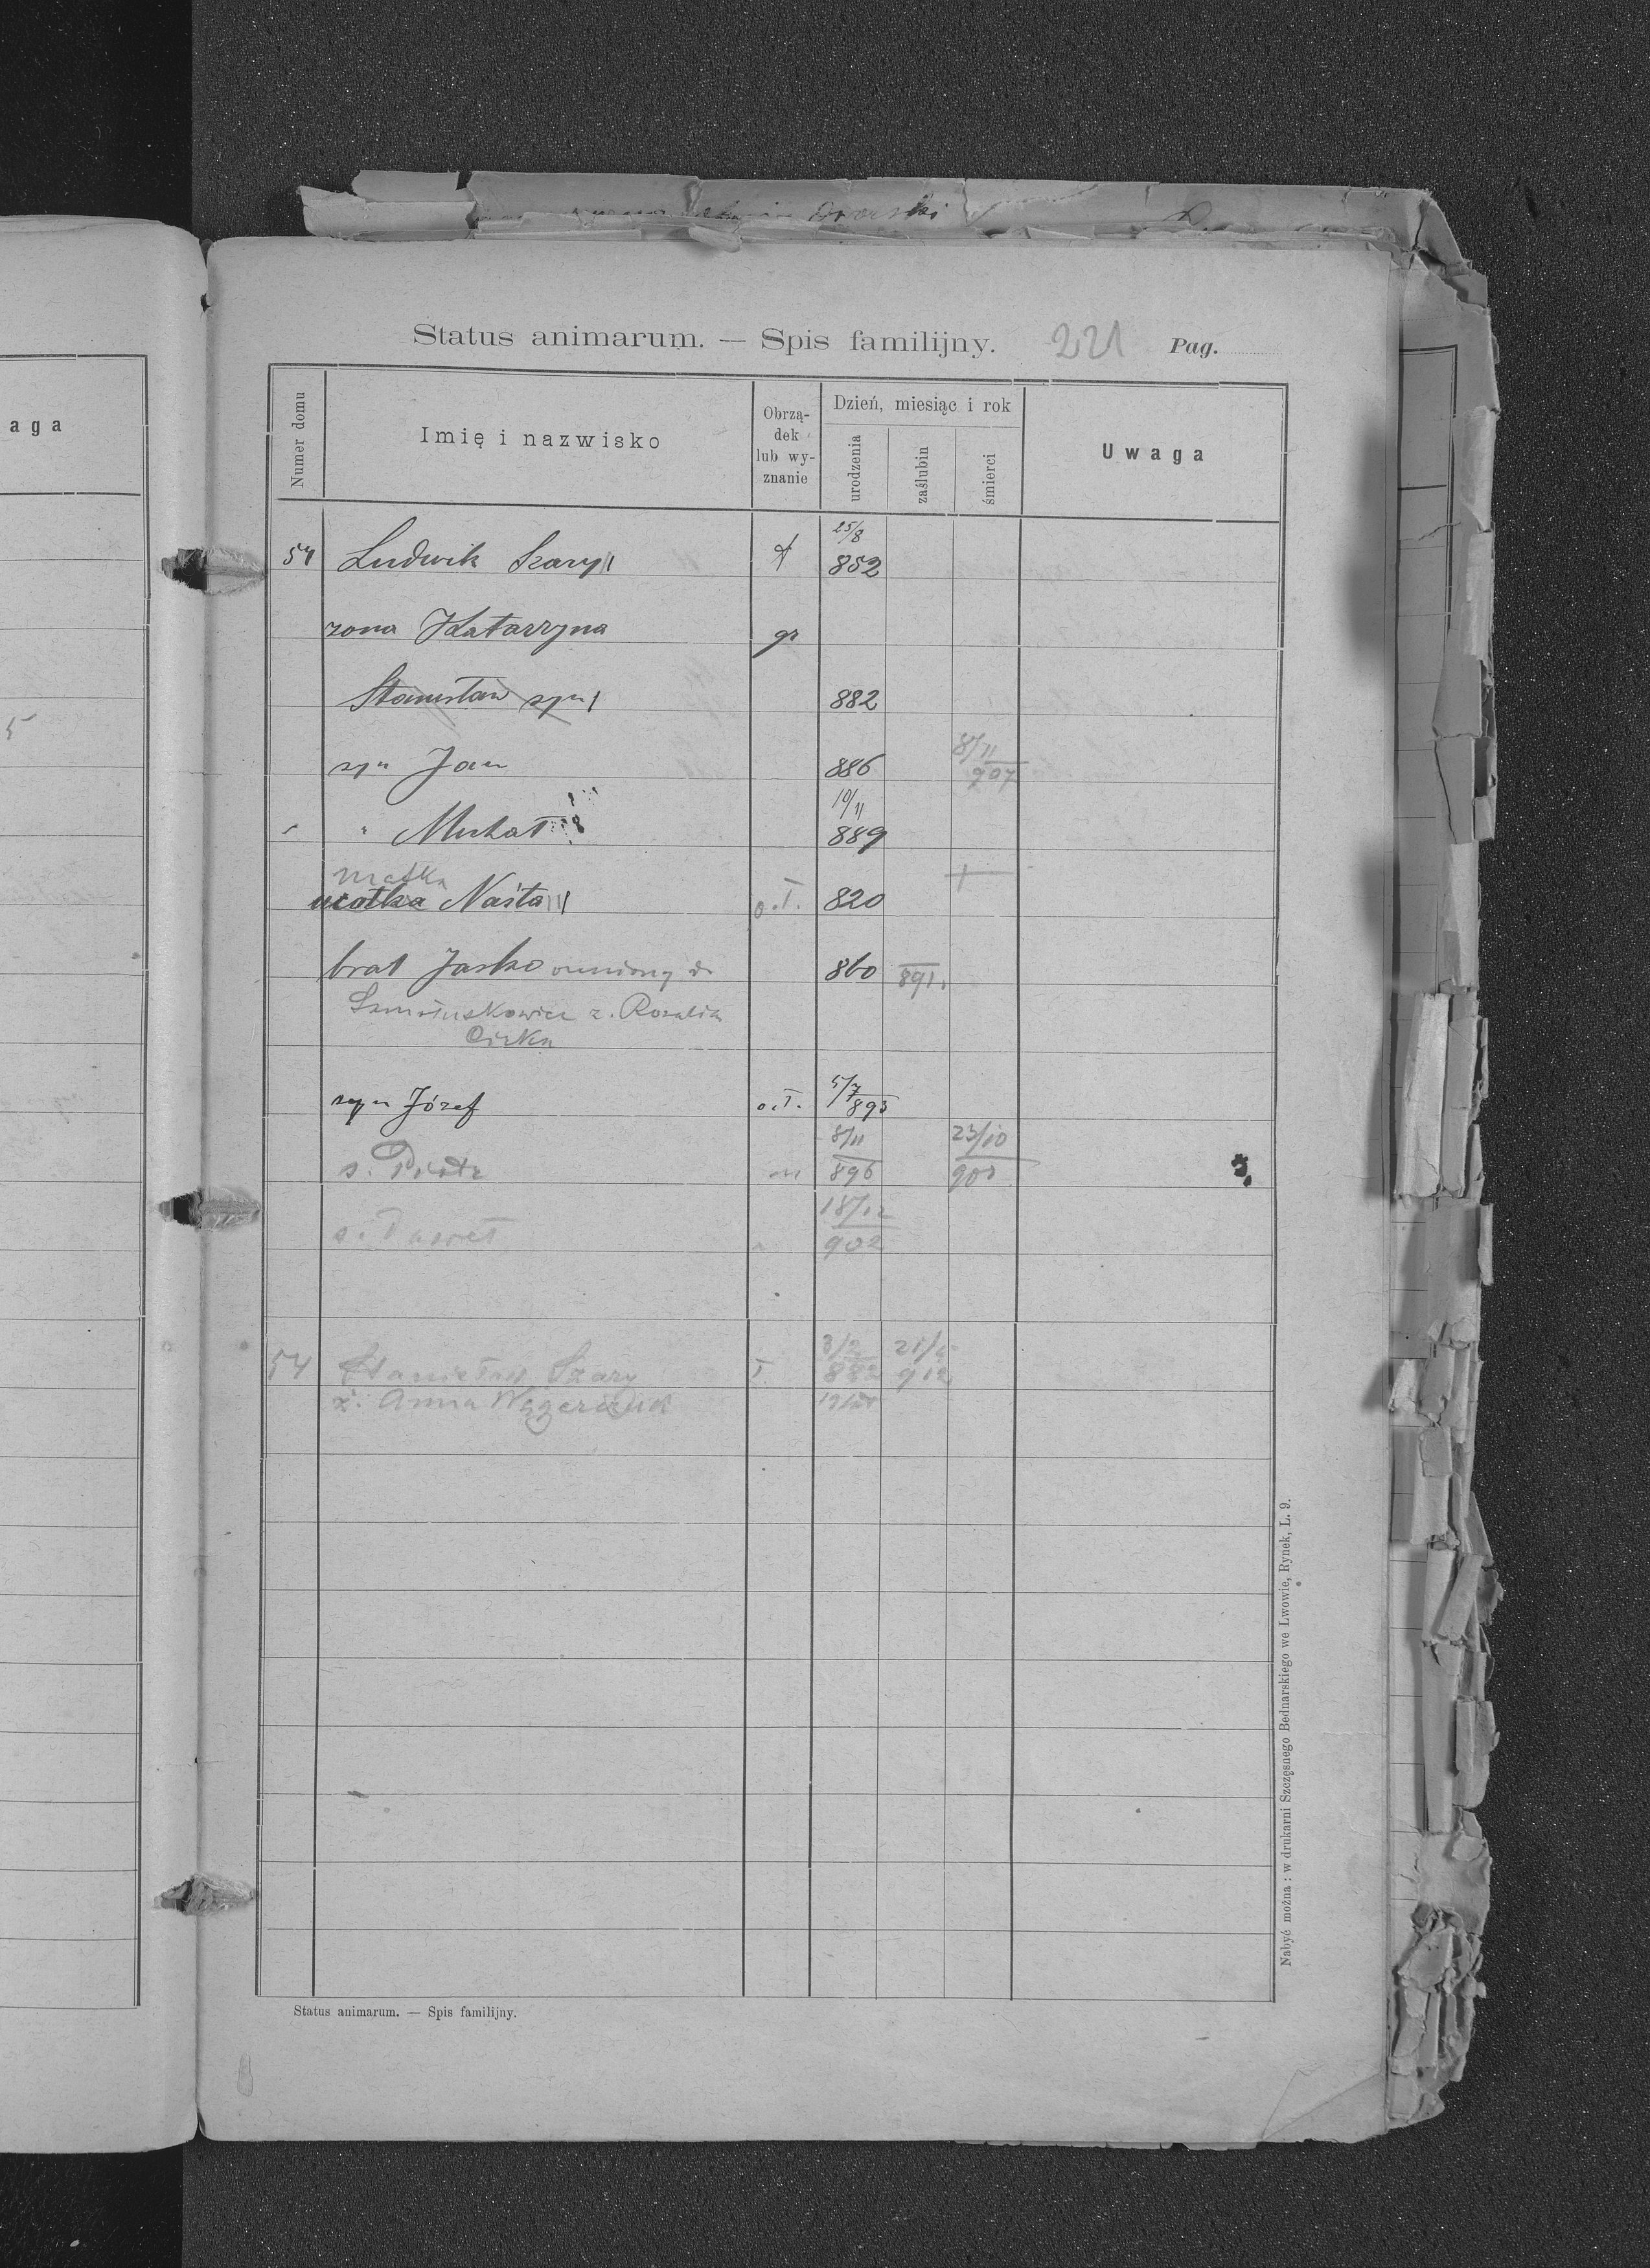 aga
5
Status animarum. — Spis familijny. 221 Pag.
Numer domu
Imię i nazwisko
Obrzą-
dek
lub wy-
znanie
Dzień, miesiąc i rok
urodzenia
zaślubin
śmierci
Uwaga
25/8
54 Ludwik Szary 852
zona Katarzyna gr
Stanisław syn 882
8/11
syn Jan 886 907
10/11
" Michał 889
matka
Nasta o.Ł. 820 +
brat Jaśko 860 891.
z. Rozalia
5/7
syn Józef o.Ł. 893
8/11 23/10
s. Piotr 896
18/12
s. Paweł 902
3/2
54 Stanisław Szary Ł 882 912
ż. Anna
Nabyć można: w drukarni Szczęsnego Bednarskiego we Lwowie, Rynek, L. 9.
Status animarum. — Spis familijny.